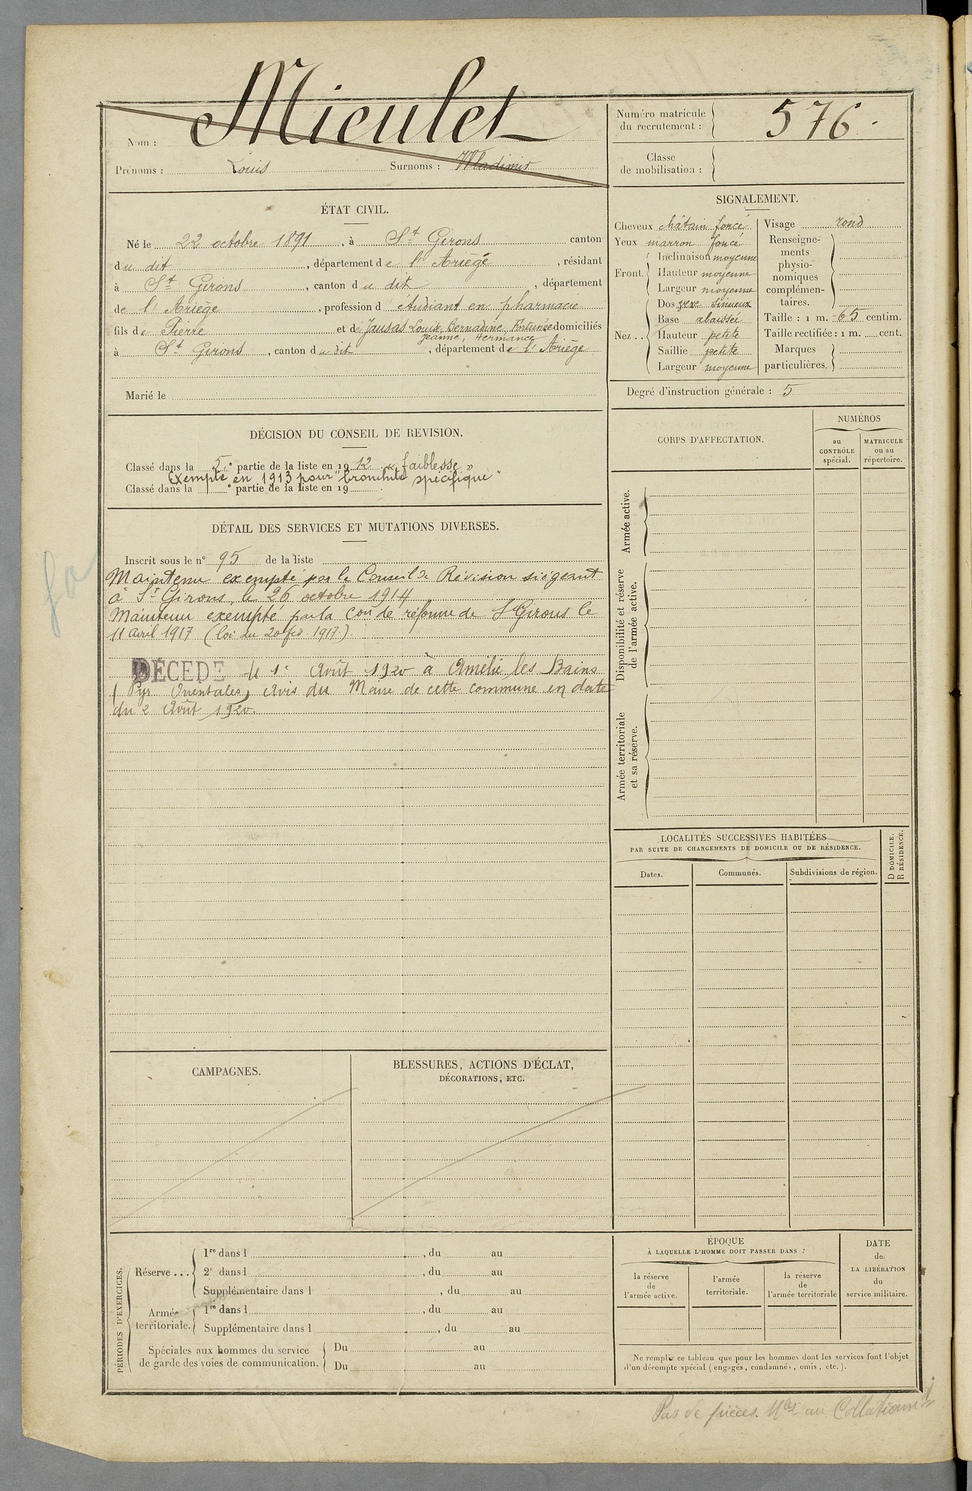 Nom : Mieulet
Prénoms : Louis Surnoms : Wladimir
Numéro matricule du recrutement : 576.
Classe de mobilisation :
ÉTAT CIVIL.
Né le 22 octobre 1891, à St Girons canton
du dit, département de l'Ariège, résidant
à St Girons, canton du dit, département
de l'Ariège, profession d étudiant en pharmacie
fils de Pierre et de Jausas Louise, Bernadine, Fortunée domiciliés
Jeanne, Hermance
à St Girons, canton du dit, département de l'Ariège
Marié le
SIGNALEMENT.
Cheveux châtain foncé
Yeux marron foncé
Front.
Inclinaison moyenne
Hauteur moyenne
Largeur moyenne
Nez..
Dos sinueux
Base abaissée
Hauteur petite
Saillie petite
Largeur moyenne
Visage rond
Renseignements physionomiques complémentaires.
Taille : 1 m. 65 centim.
Taille rectifiée : 1 m. cent.
Marques particulières.
Degré d'instruction générale : 5
DÉCISION DU CONSEIL DE REVISION.
Classé dans la 5e partie de la liste en 1912 « faiblesse »
Exempté en 1913 pour "bronchite spécifique"
Classé dans la e partie de la liste en 19
DÉTAIL DES SERVICES ET MUTATIONS DIVERSES.
Inscrit sous le n° 95 de la liste
Maintenu exempté par le Conseil de Révision siégeant
à St Girons, le 26 octobre 1914
Maintenu exempté par la Con de réforme de St Girons le
11 avril 1917 (loi du 20 fév 1917.)
DÉCÉDÉ le 1er Août 1920 à Amélie les Bains
(Pyr Orientales) Avis du Maire de cette commune en date
du 2 Août 1920.
CORPS D'AFFECTATION.
NUMÉROS
au CONTRÔLE spécial.
MATRICULE ou au répertoire.
Armée active.
Disponibilité et réserve de l'armée active.
Armée territoriale et sa réserve.
LOCALITÉS SUCCESSIVES HABITÉES
PAR SUITE DE CHANGEMENTS DE DOMICILE OU DE RÉSIDENCE.
Dates.
Communes.
Subdivisions de région.
D DOMICILE.
R RÉSIDENCE.
CAMPAGNES.
BLESSURES, ACTIONS D'ÉCLAT,
DÉCORATIONS, ETC.
PÉRIODES D'EXERCICES.
Réserve ...
1re dans l , du au
2e dans l , du au
Supplémentaire dans l , du au
Armée territoriale.
1re dans l , du au
Supplémentaire dans l , du au
Spéciales aux hommes du service
de garde des voies de communication.
Du au
Du au
ÉPOQUE
À LAQUELLE L'HOMME DOIT PASSER DANS :
la réserve de l'armée active.
l'armée territoriale.
la réserve de l'armée territoriale
DATE de LA LIBÉRATION du service militaire.
Ne remplir ce tableau que pour les hommes dont les services font l'objet
d'un décompte spécial (engagés, condamnés, omis, etc.).
Pas de pièces. au